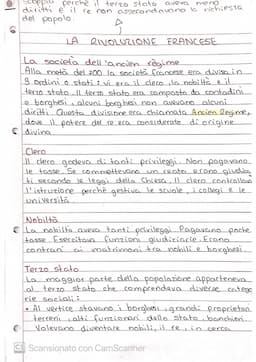 scoppiò perché il terzo stato aveva meno
diritti e il re non assecondavano la richiesta
del popolo.
LA RIVOLUZIONE FRANCESE
La società dell'ancien règime
Alla metà del '700 la società francese era divisa in
3 ordini o stati: vi era il clero, la nobiltà e il
terzo stato. Il terzo stato era composto da contadini
e borghesi, alcuni borghesi non avevano alcuni
diritti. Questa divisione era chiamata Ancien Regime,
dove il potere del re era considerato di origine
divina
Clero
Il clero godeva di tanti privilegi. Non pagavano
le tasse. Se commettevano un reato erano giudica
ti secondo le leggi della Chiesa. Il clero controllava
l'istruzione perché gestiva le scuole, i collegi e le
università.
Nobiltà
La nobiltà aveva tanti privilegi. Pagavano poche
tasse. Esercitava funzioni giudiziarie. Erano
contrari ai matrimoni tra nobili e borghesi.
Terzo stato
La maggior parte della popolazione apparteneva
al terzo stato che comprendeva diverse catego
rie sociali:
• Al vertice stavano i borghesi, grandi proprietari
terrieri, alti funzionari dello stato, banchieri.
Volevano diventare nobili, il re, in cerca
CS Scansionato con CamScanner